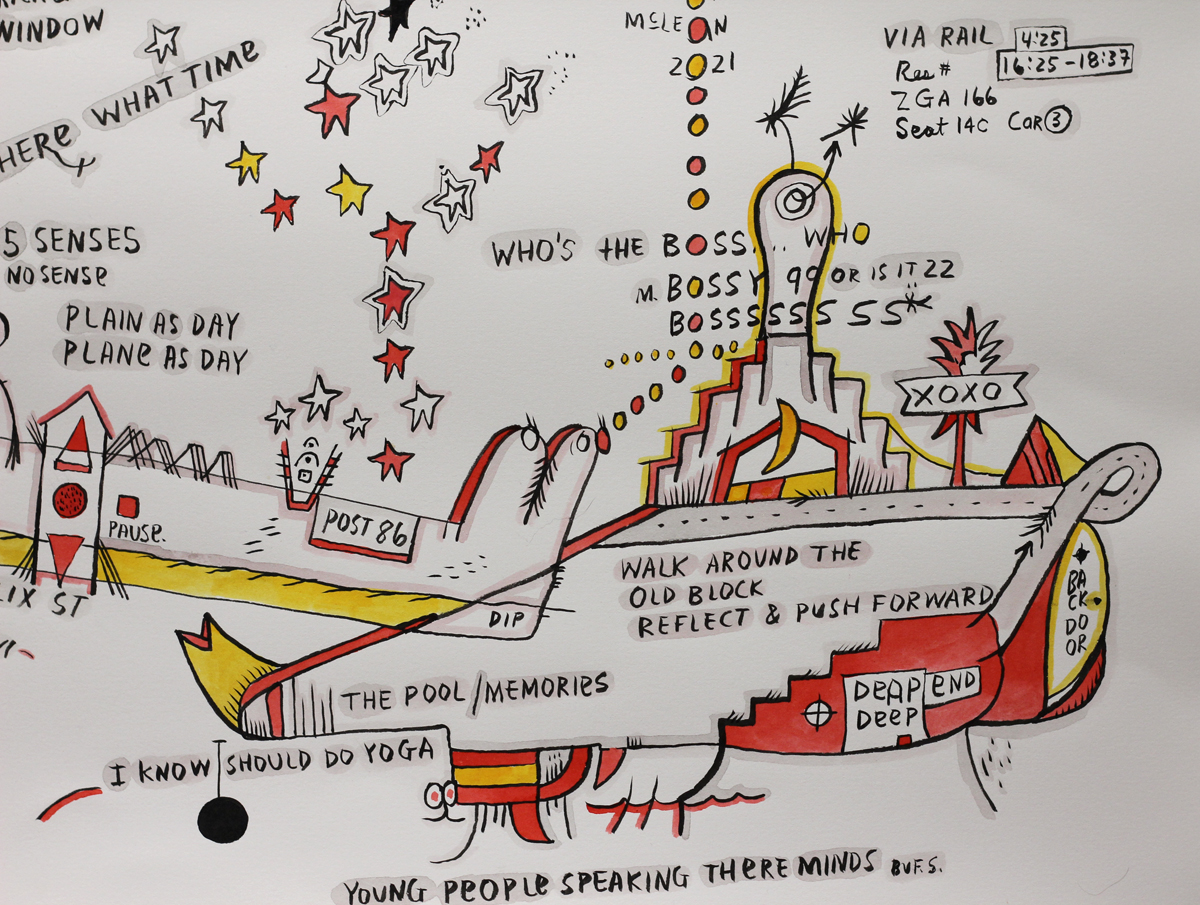 WINDOW
HERE WHAT TIME
McLEAN
2021
VIA RAIL 4:25
16:25-18:37
Res #
ZGA 166
Seat 14C Car 3
5 SENSES
NO SENSe
WHO'S tHE BOSS... WHO
M. BOSSY 99 OR IS IT 22
BOSSSSSSSS
PLAIN AS DAY
PLANe AS DAY
XOXO
PAUSe.
POST 86
LIX ST
DIP
WALK AROUND THE
OLD BLOCK
REFLECT & PUSH FORWARD
BA
CK
DO
OR
THE POOL/MEMORIeS
DeAP END
DeeP
I KNOW I SHOULD DO YOGA
YOUNG PEOPLe SPEAKING THeRe MINDS BUF.S.